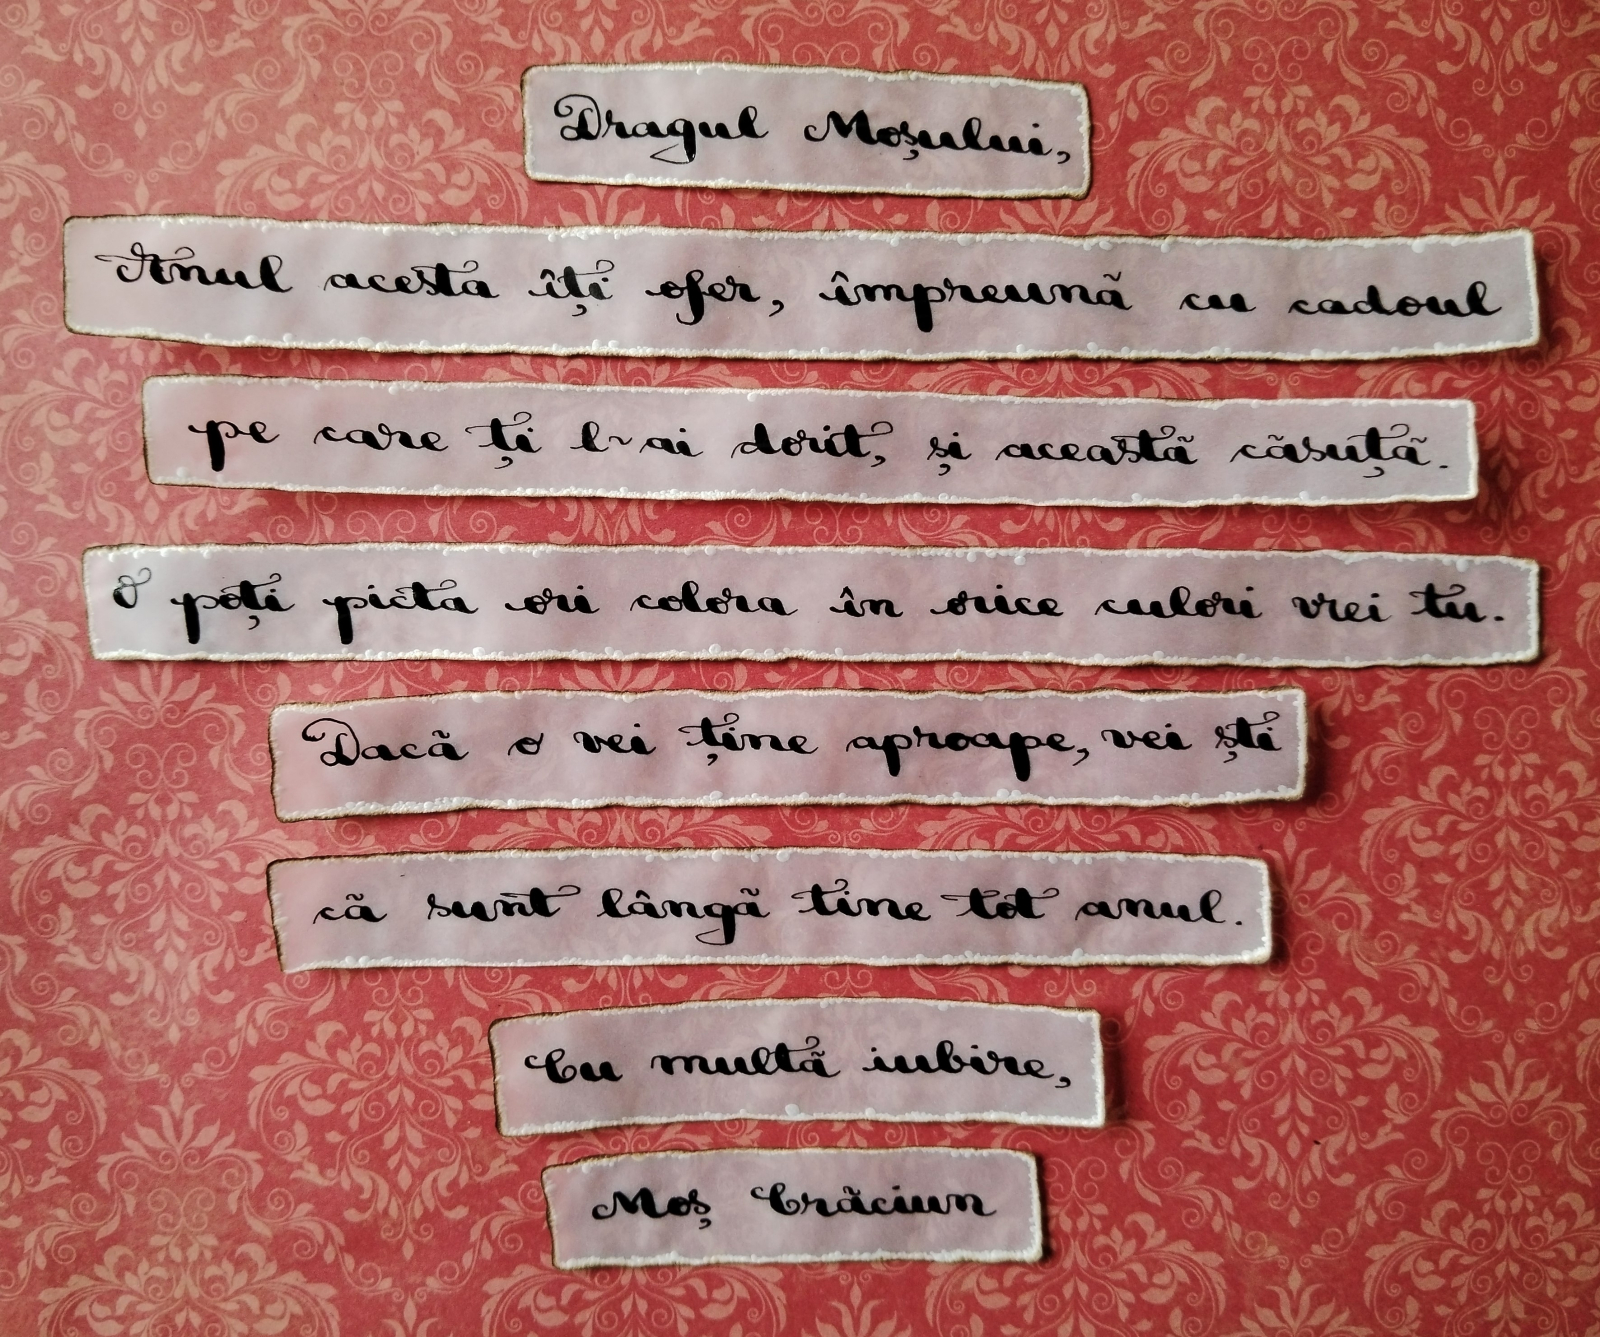 Dragul Moșului,
Anul acesta îți ofer, împreună cu cadoul
pe care ți l-ai dorit, și această căsuță.
O poți picta ori colora în orice culori vrei tu.
Dacă o vei ține aproape, vei ști
că sunt lângă tine tot anul.
Cu multă iubire,
Moș Crăciun